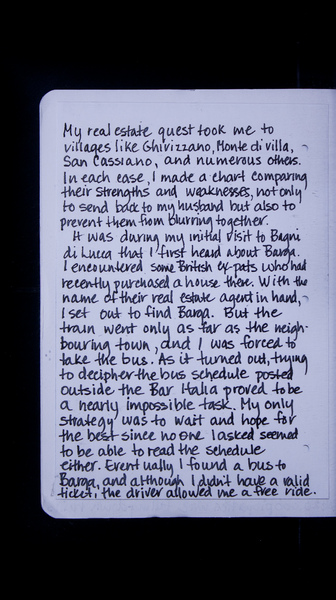 My real estate quest took me to
villages like Ghivizzano, Monte di villa,
San Cassiano, and numerous others.
In each case, I made a chart comparing
their strengths and weaknesses, not only
to send back to my husband but also to
prevent them from blurring together.
It was during my initial visit to Bagni
di Lucca that I first heard about Barga.
I encountered some British ex-pats who had
recently purchased a house there. With the
name of their real estate agent in hand,
I set out to find Barga. But the
train went only as far as the neigh-
bouring town, and I was forced to
take the bus. As it turned out, trying
to decipher the bus schedule posted
outside the Bar Italia proved to be
a nearly impossible task. My only
strategy was to wait and hope for
the best since no one I asked seemed
to be able to read the schedule
either. Eventually I found a bus to
Barga, and although I didn't have a valid
ticket, the driver allowed me a free ride.